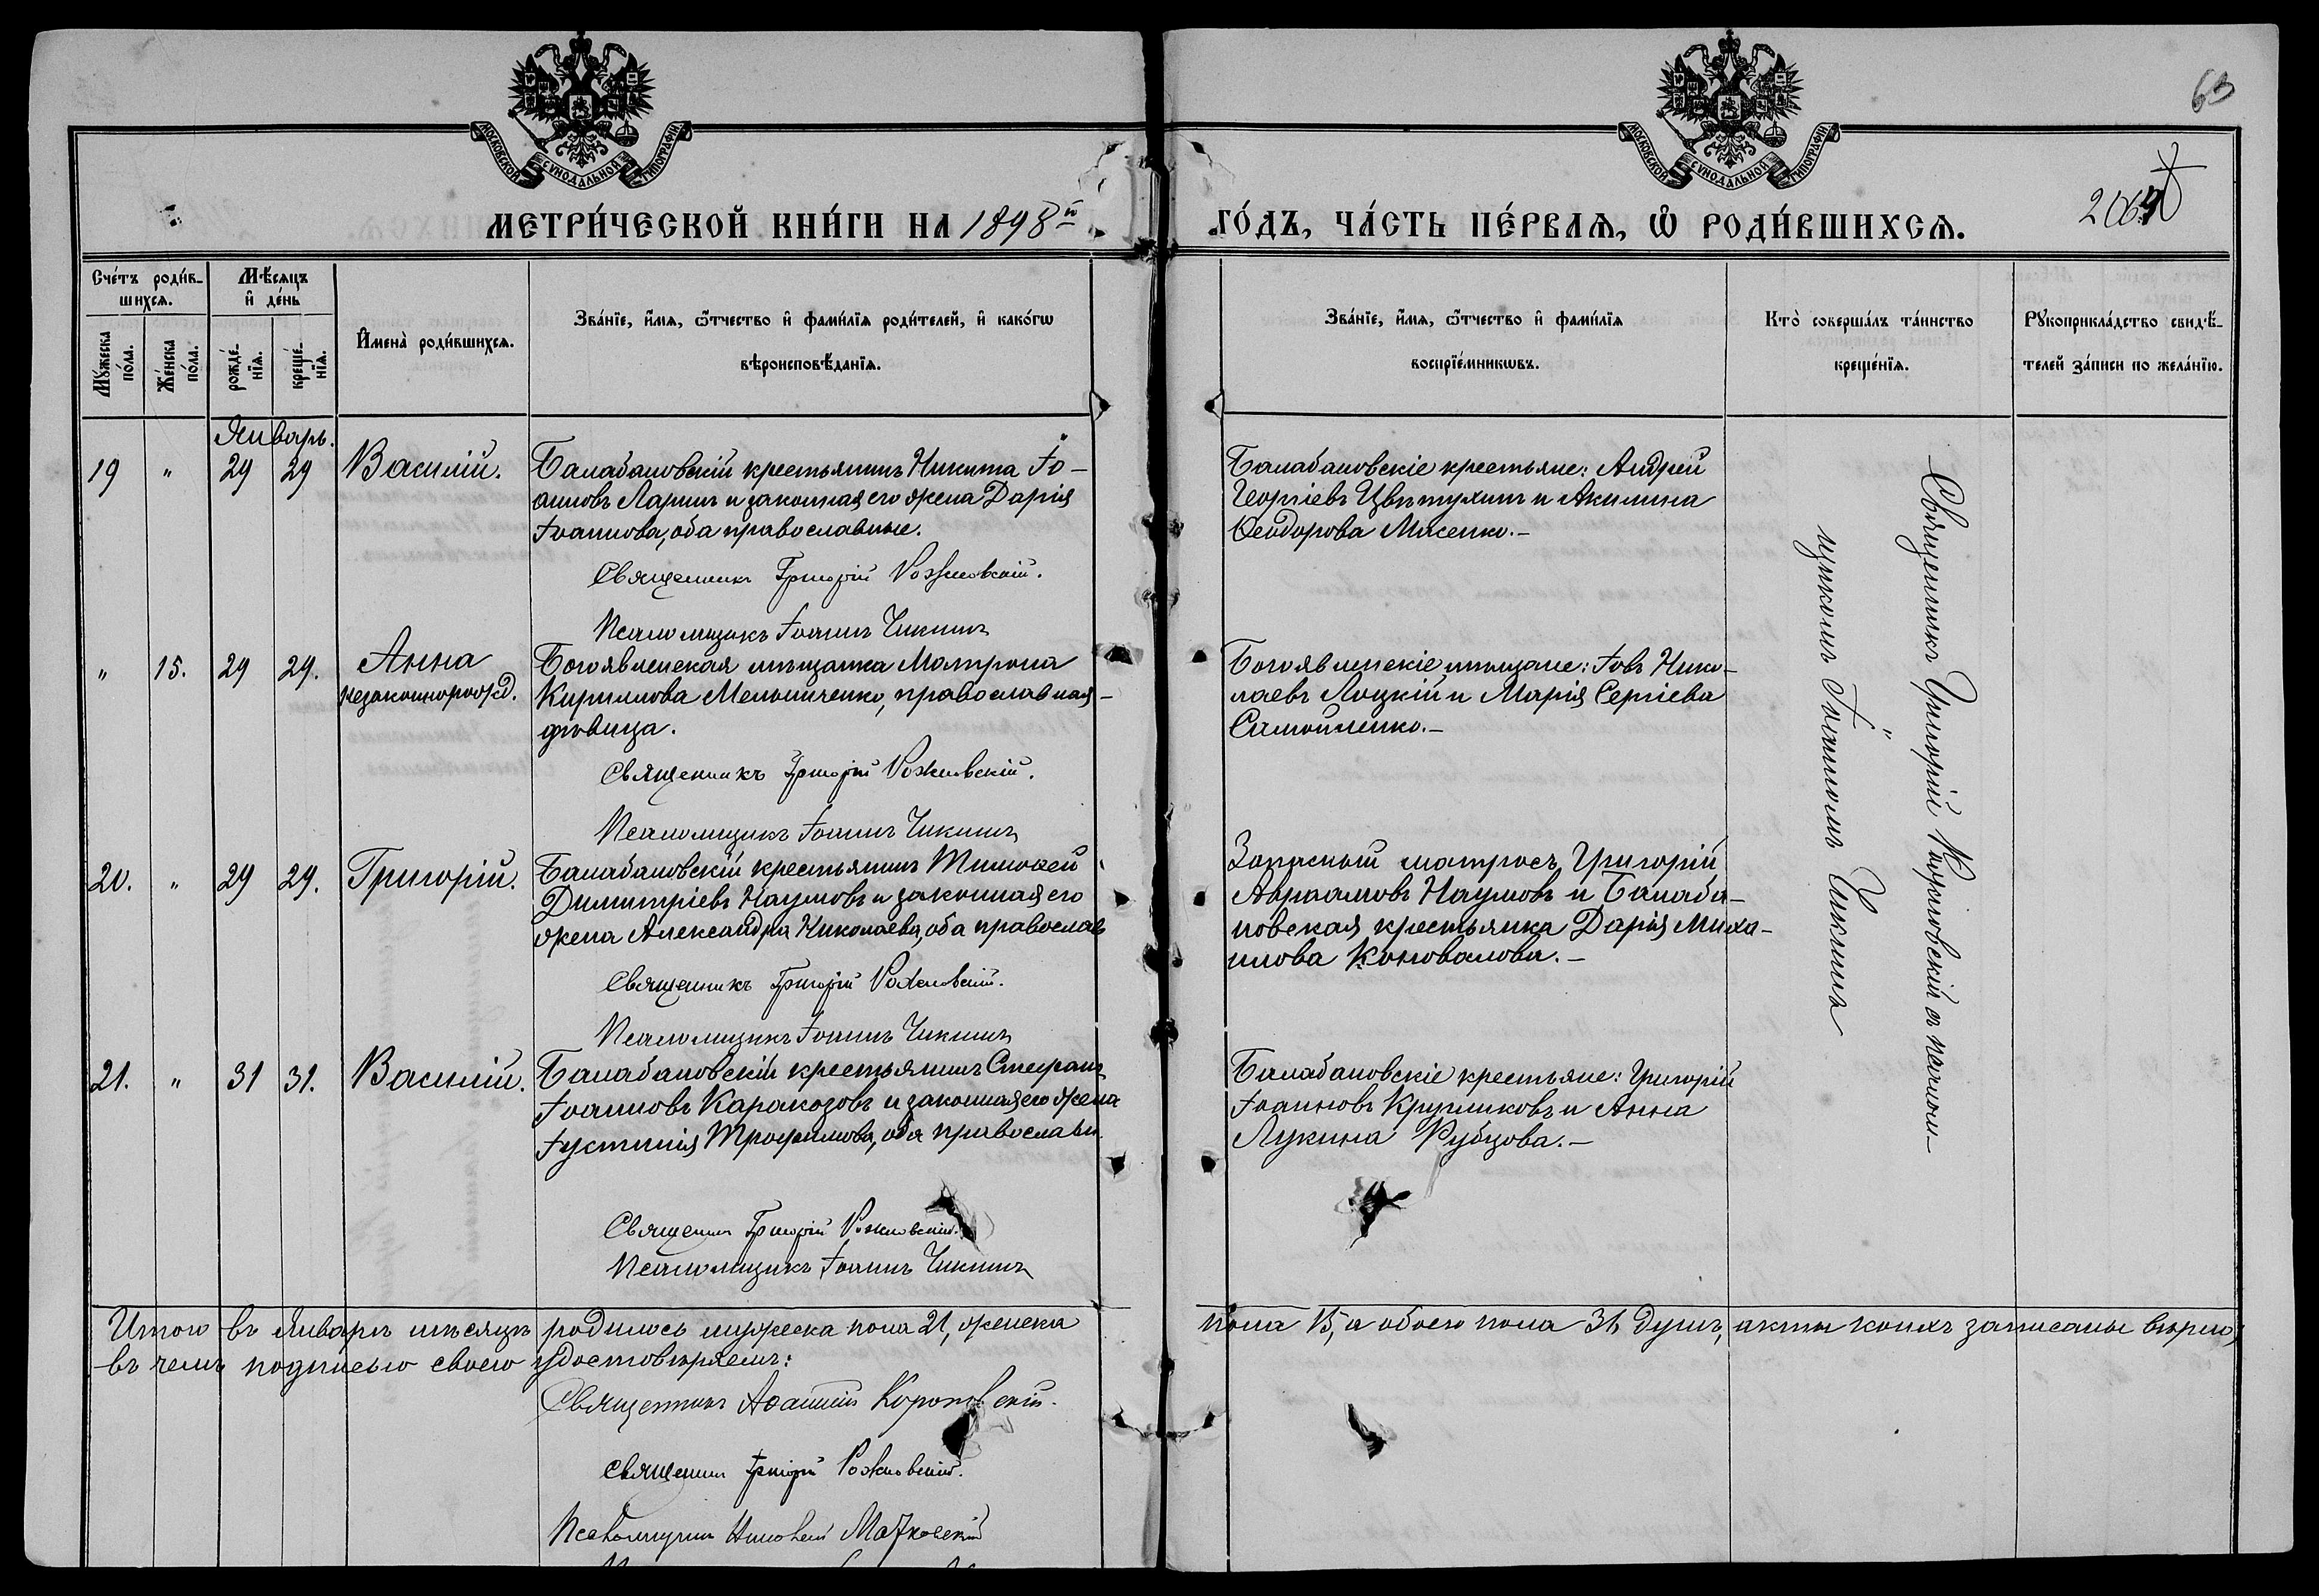 63
МОСКОВСКОЙ СѴНОДАЛЬНОЙ ТИПОГРАФІИ
МОСКОВСКОЙ СѴНОДАЛЬНОЙ ТИПОГРАФІИ
МЕТРИ́ЧЕСКОЙ КНИ́ГИ НА 1898й
ГО́ДЪ, ЧА́СТЬ ПЕ́РВАѦ, Ѡ҆ РОДИ́ВШИХСѦ.
Сче́тъ роди́в-
шихсѧ.
Мꙋ́жеска
по́ла.
Же́нска
по́ла.
Мѣ́сѧцъ
и҆ де́нь
рожде́-
нїѧ.
креще́-
нїѧ.
И҆мена̀ роди́вшихсѧ.
Зва́нїе, и҆́мѧ, ѻ҆́тчество и҆ фами́лїѧ роди́телей, и҆ како́гѡ
вѣроисповѣ́данїѧ.
Зва́нїе, и҆́мѧ, ѻ҆́тчество и҆ фами́лїѧ
воспрїе́мникѡвъ.
Кто̀ соверша́лъ та́инство
креще́нїѧ.
Рꙋкоприкла́дство свидѣ́-
телей за́писи по жела́нїю.
Январь.
19 " 29 29 Василій.
Балабановскій крестьянинъ Никита Іо-
анновъ Ларинъ и законная его жена Дарія
Іоаннова, оба православные.
Священникъ Григорій
Псаломщикъ Іоаннъ Чикинъ
Балабановскіе крестьяне: Андрей
Георгіевъ Цвѣтухинъ и Акилина
Ѳеодорова Мисенко.-
" 15. 29 29. Анна
незаконнорожд.
Богоявленская мѣщанка Матрона
Кириллова Мельниченко, православная -
дѣвица.
Священникъ Григорій
Псаломщикъ Іоаннъ Чикинъ
Богоявленскіе мѣщане: Іовъ Нико-
лаевъ Лоцкій и Марія Сергіева
Самойленко.-
20. " 29 29. Григорій.
Балабановскій крестьянинъ Тимоѳей
Димитріевъ Наумовъ и законная его
жена Александра Николаева, оба православ
Священникъ Григорій
Псаломщикъ Іоаннъ Чикинъ
Запасный матросъ Григорій
Авраамовъ Наумовъ и Балаба-
новская крестьянка Дарія Миха-
илова Коновалова.-
21. " 31 31. Василій.
Балабановскій крестьянинъ Стефанъ
Іоанновъ Каракозовъ и законная его жена
Іустинія Трофимова, оба православн.
Священникъ Григорій
Псаломщикъ Іоаннъ Чикинъ
Балабановскіе крестьяне: Григорій
Іоанновъ Кругликовъ и Анна
Лукина Рубцова.-
Священникъ Григорій съ псалом-
щикомъ Іоанномъ Чикинъ
Итого въ Январѣ мѣсяцѣ родилось мужеска пола 21, женска
пола 15, а обоего пола 36 душъ, акты коихъ записаны вѣрно,
въ чемъ подписью своею удостовѣряемъ:
Священникъ Аѳанасій
Священникъ Григорій
Псаломщикъ